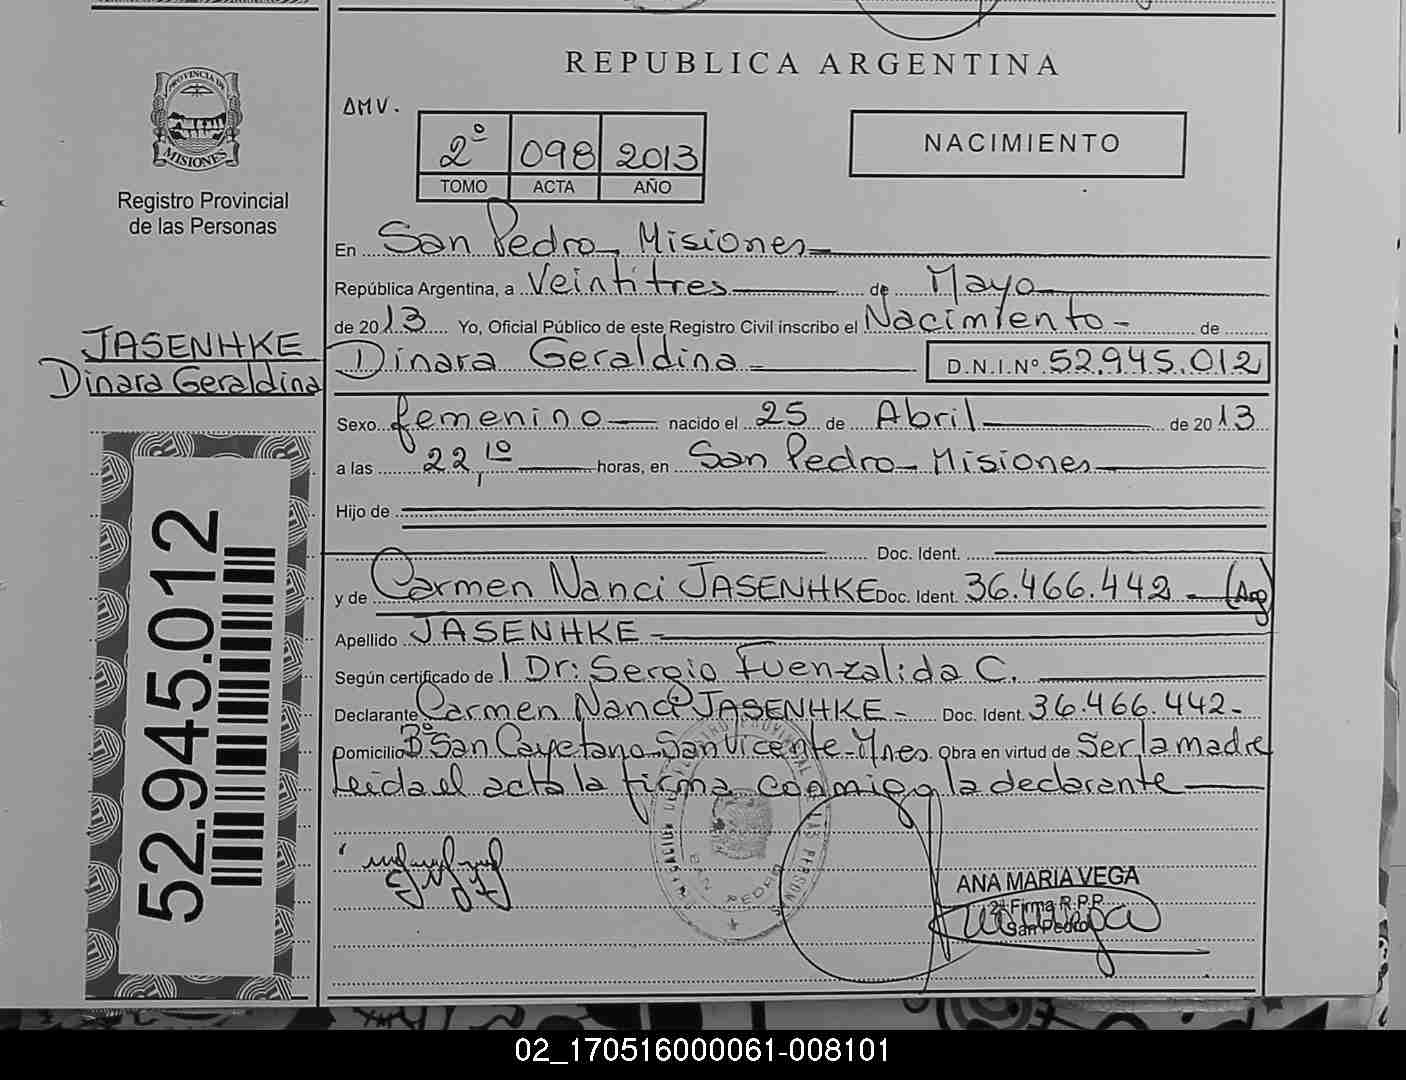 REPUBLICA ARGENTINA
PROVINCIA DE
MISIONES
Registro Provincial
de las Personas
AMV.
2º 098 2013
TOMO ACTA AÑO
NACIMIENTO
En San Pedro Misiones
República Argentina, a Veintitres de Mayo
de 2013 Yo, Oficial Público de este Registro Civil inscribo el Nacimiento - de
Dinara Geraldina D.N.I.Nº 52.945.012
JASENHKE
Dinara Geraldina
Sexo femenino nacido el 25 de Abril de 2013
a las 22,10 horas, en San Pedro - Misiones
Hijo de
Doc. Ident.
y de Carmen Nanci JASENHKE Doc. Ident. 36.466.442 - (Arg)
Apellido JASENHKE -
Según certificado de 1 Dr: Sergio Fuenzalida C.
Declarante Carmen Nanci JASENHKE - Doc. Ident. 36.466.442-
Domicilio Bº San Cayetano San Vicente - Mnes. Obra en virtud de Ser la madre
Leida el acta la firma conmigo la declarante
52.945.012
SAN PEDRO
ANA MARIA VEGA
2ª Firma R.P.P.
San Pedro
02_170516000061-008101